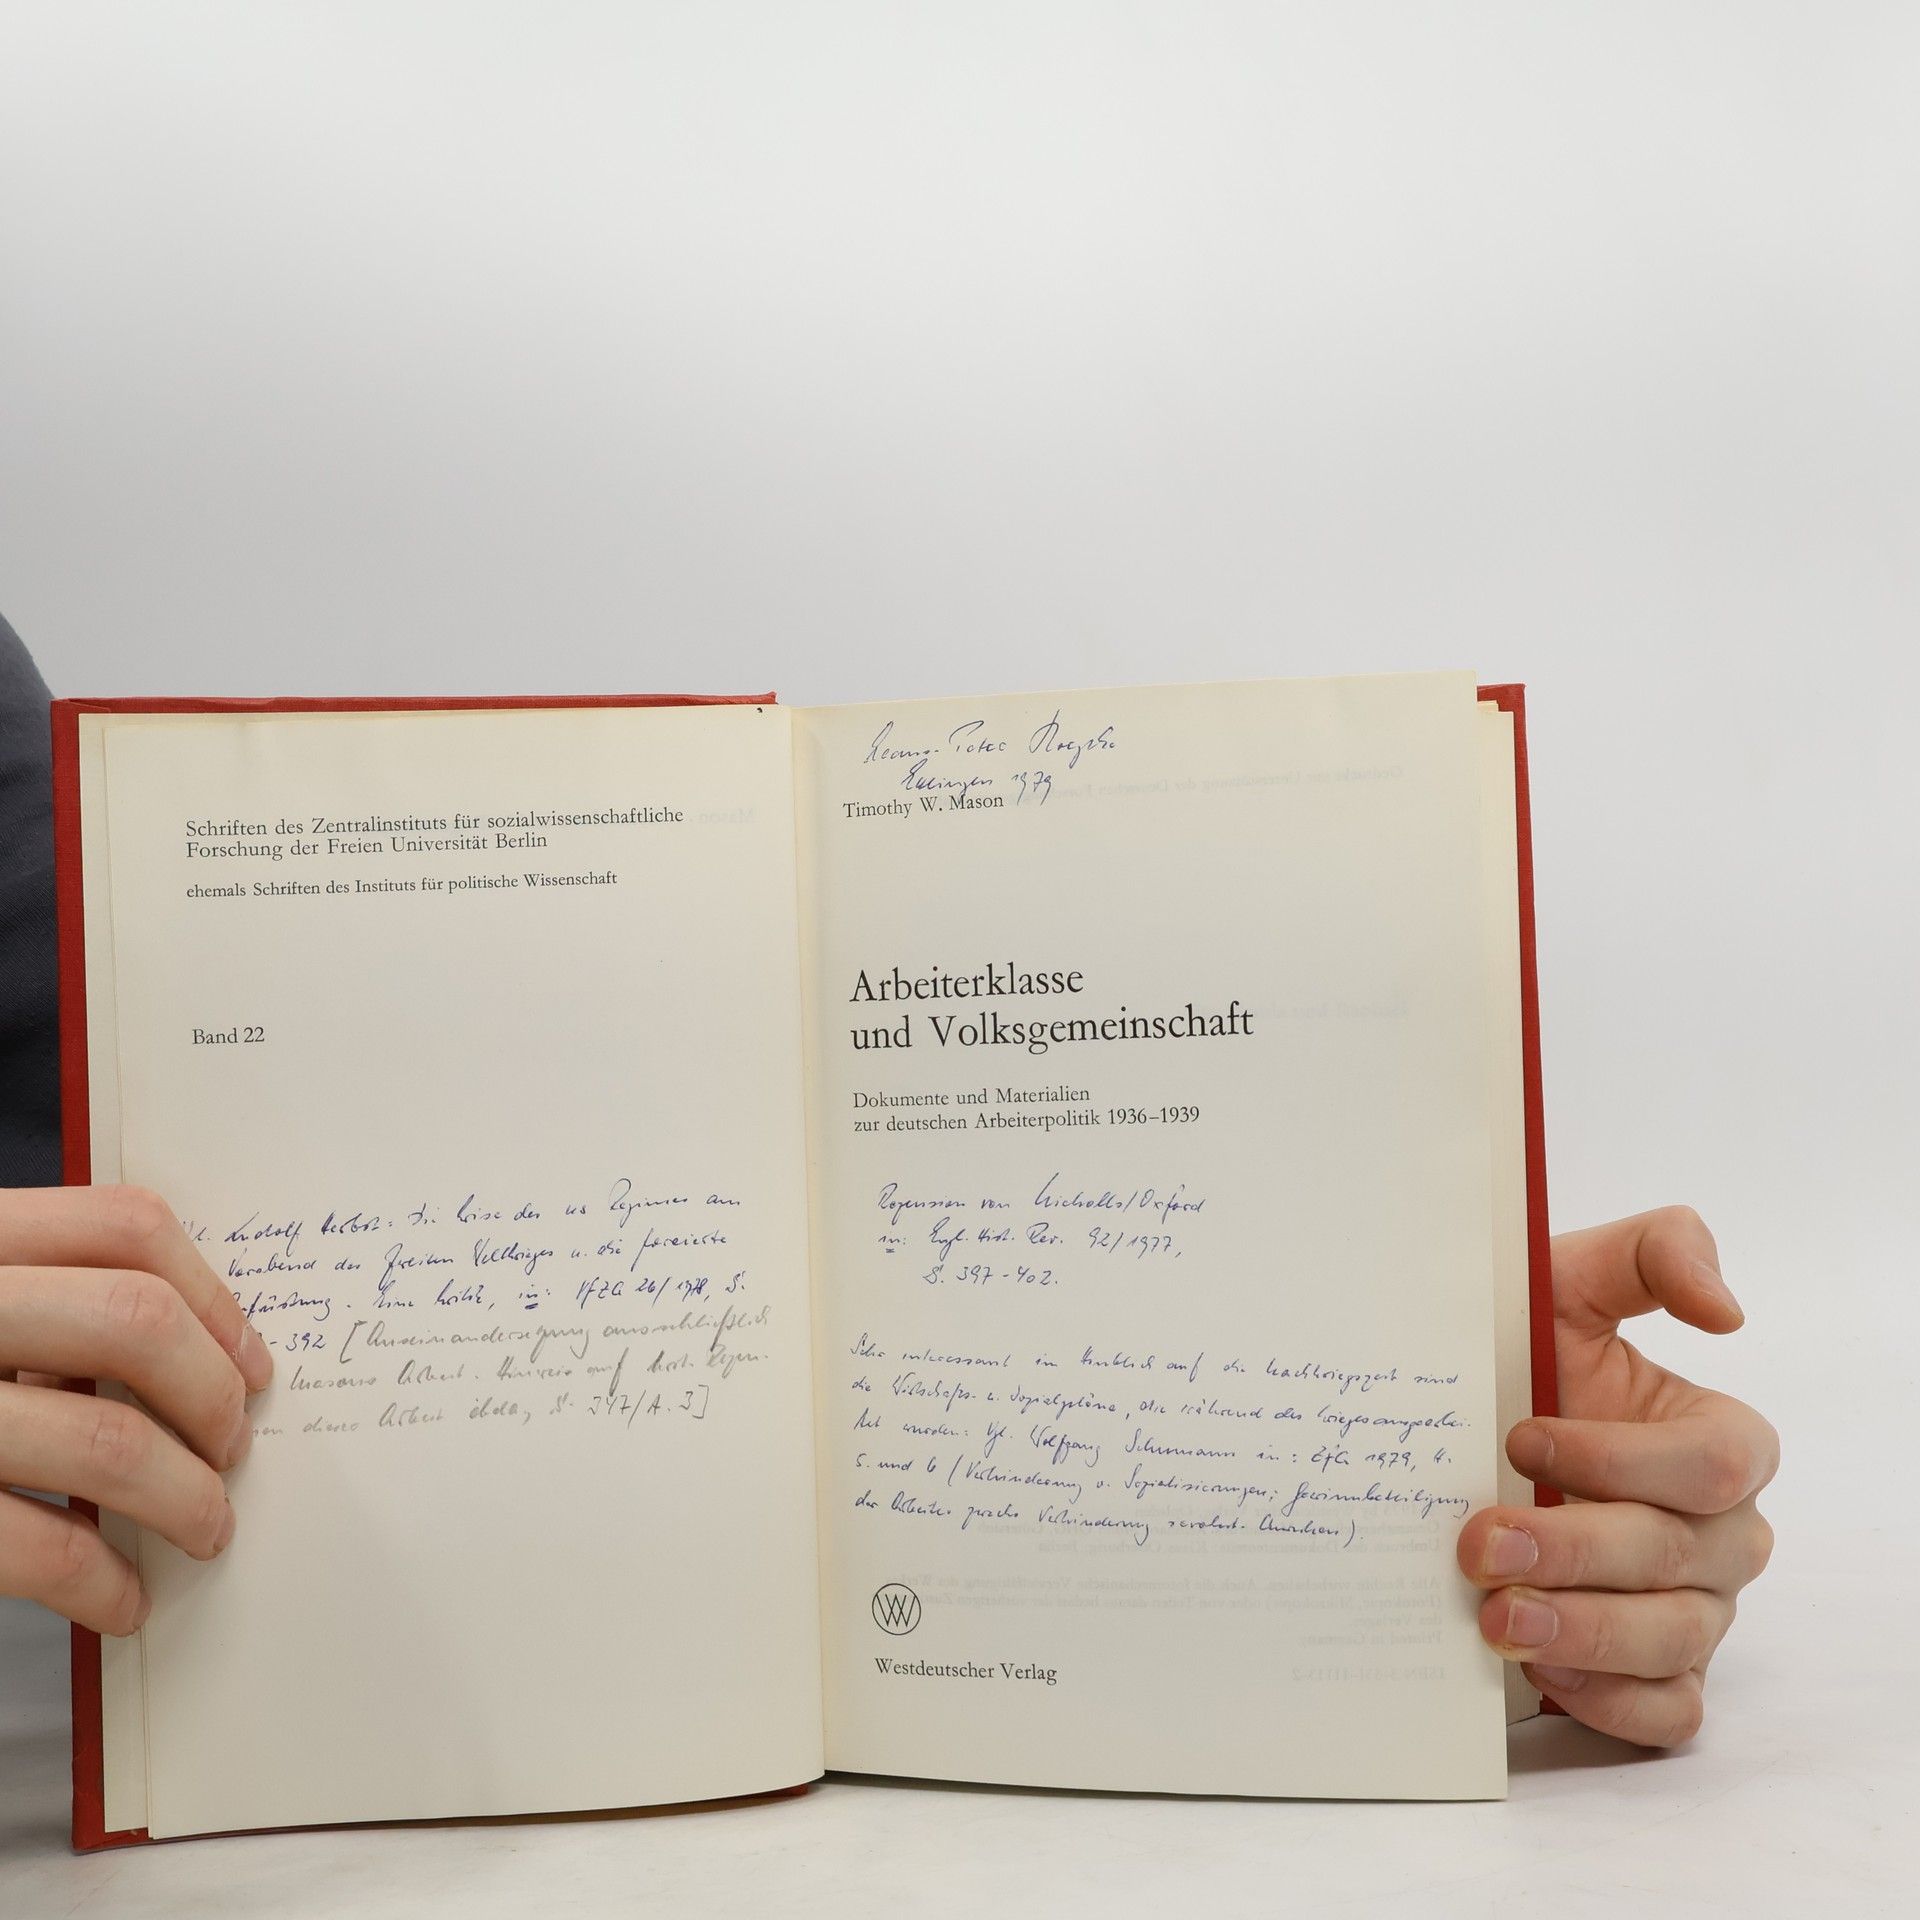 Schriften des Zentralinstituts für sozialwissenschaftliche
Forschung der Freien Universität Berlin
ehemals Schriften des Instituts für politische Wissenschaft
Band 22
Ludolf Herbst: Die Krise des ns Regimes am
Vorabend des Zweiten Weltkrieges u. die forcierte
Aufrüstung. Eine Kritik, in: VfZG 26/1978, S.
- 392 [Auseinandersetzung ausschließlich
Masons Arbeit. Hinweis auf krit. Rezen-
dieser Arbeit ebda, S. 347/A. 3]
Hans-Peter
1979
Timothy W. Mason
Arbeiterklasse
und Volksgemeinschaft
Dokumente und Materialien
zur deutschen Arbeiterpolitik 1936–1939
Rezension von Nicholls/Oxford
in: Engl. Hist. Rev. 92/1977,
S. 397-402.
Sehr interessant im Hinblick auf die Nachkriegszeit sind
die Wirtschafts- u. Sozialpläne, die während des Krieges ausgearbei-
tet wurden: Vgl. Wolfgang Schumann in: ZfG 1979, H.
5 und 6 (Verhinderung v. Sozialisierungen; Gewinnbeteiligung
der Arbeiter zwecks Verhinderung revolut. Unruhen).
VW
Westdeutscher Verlag